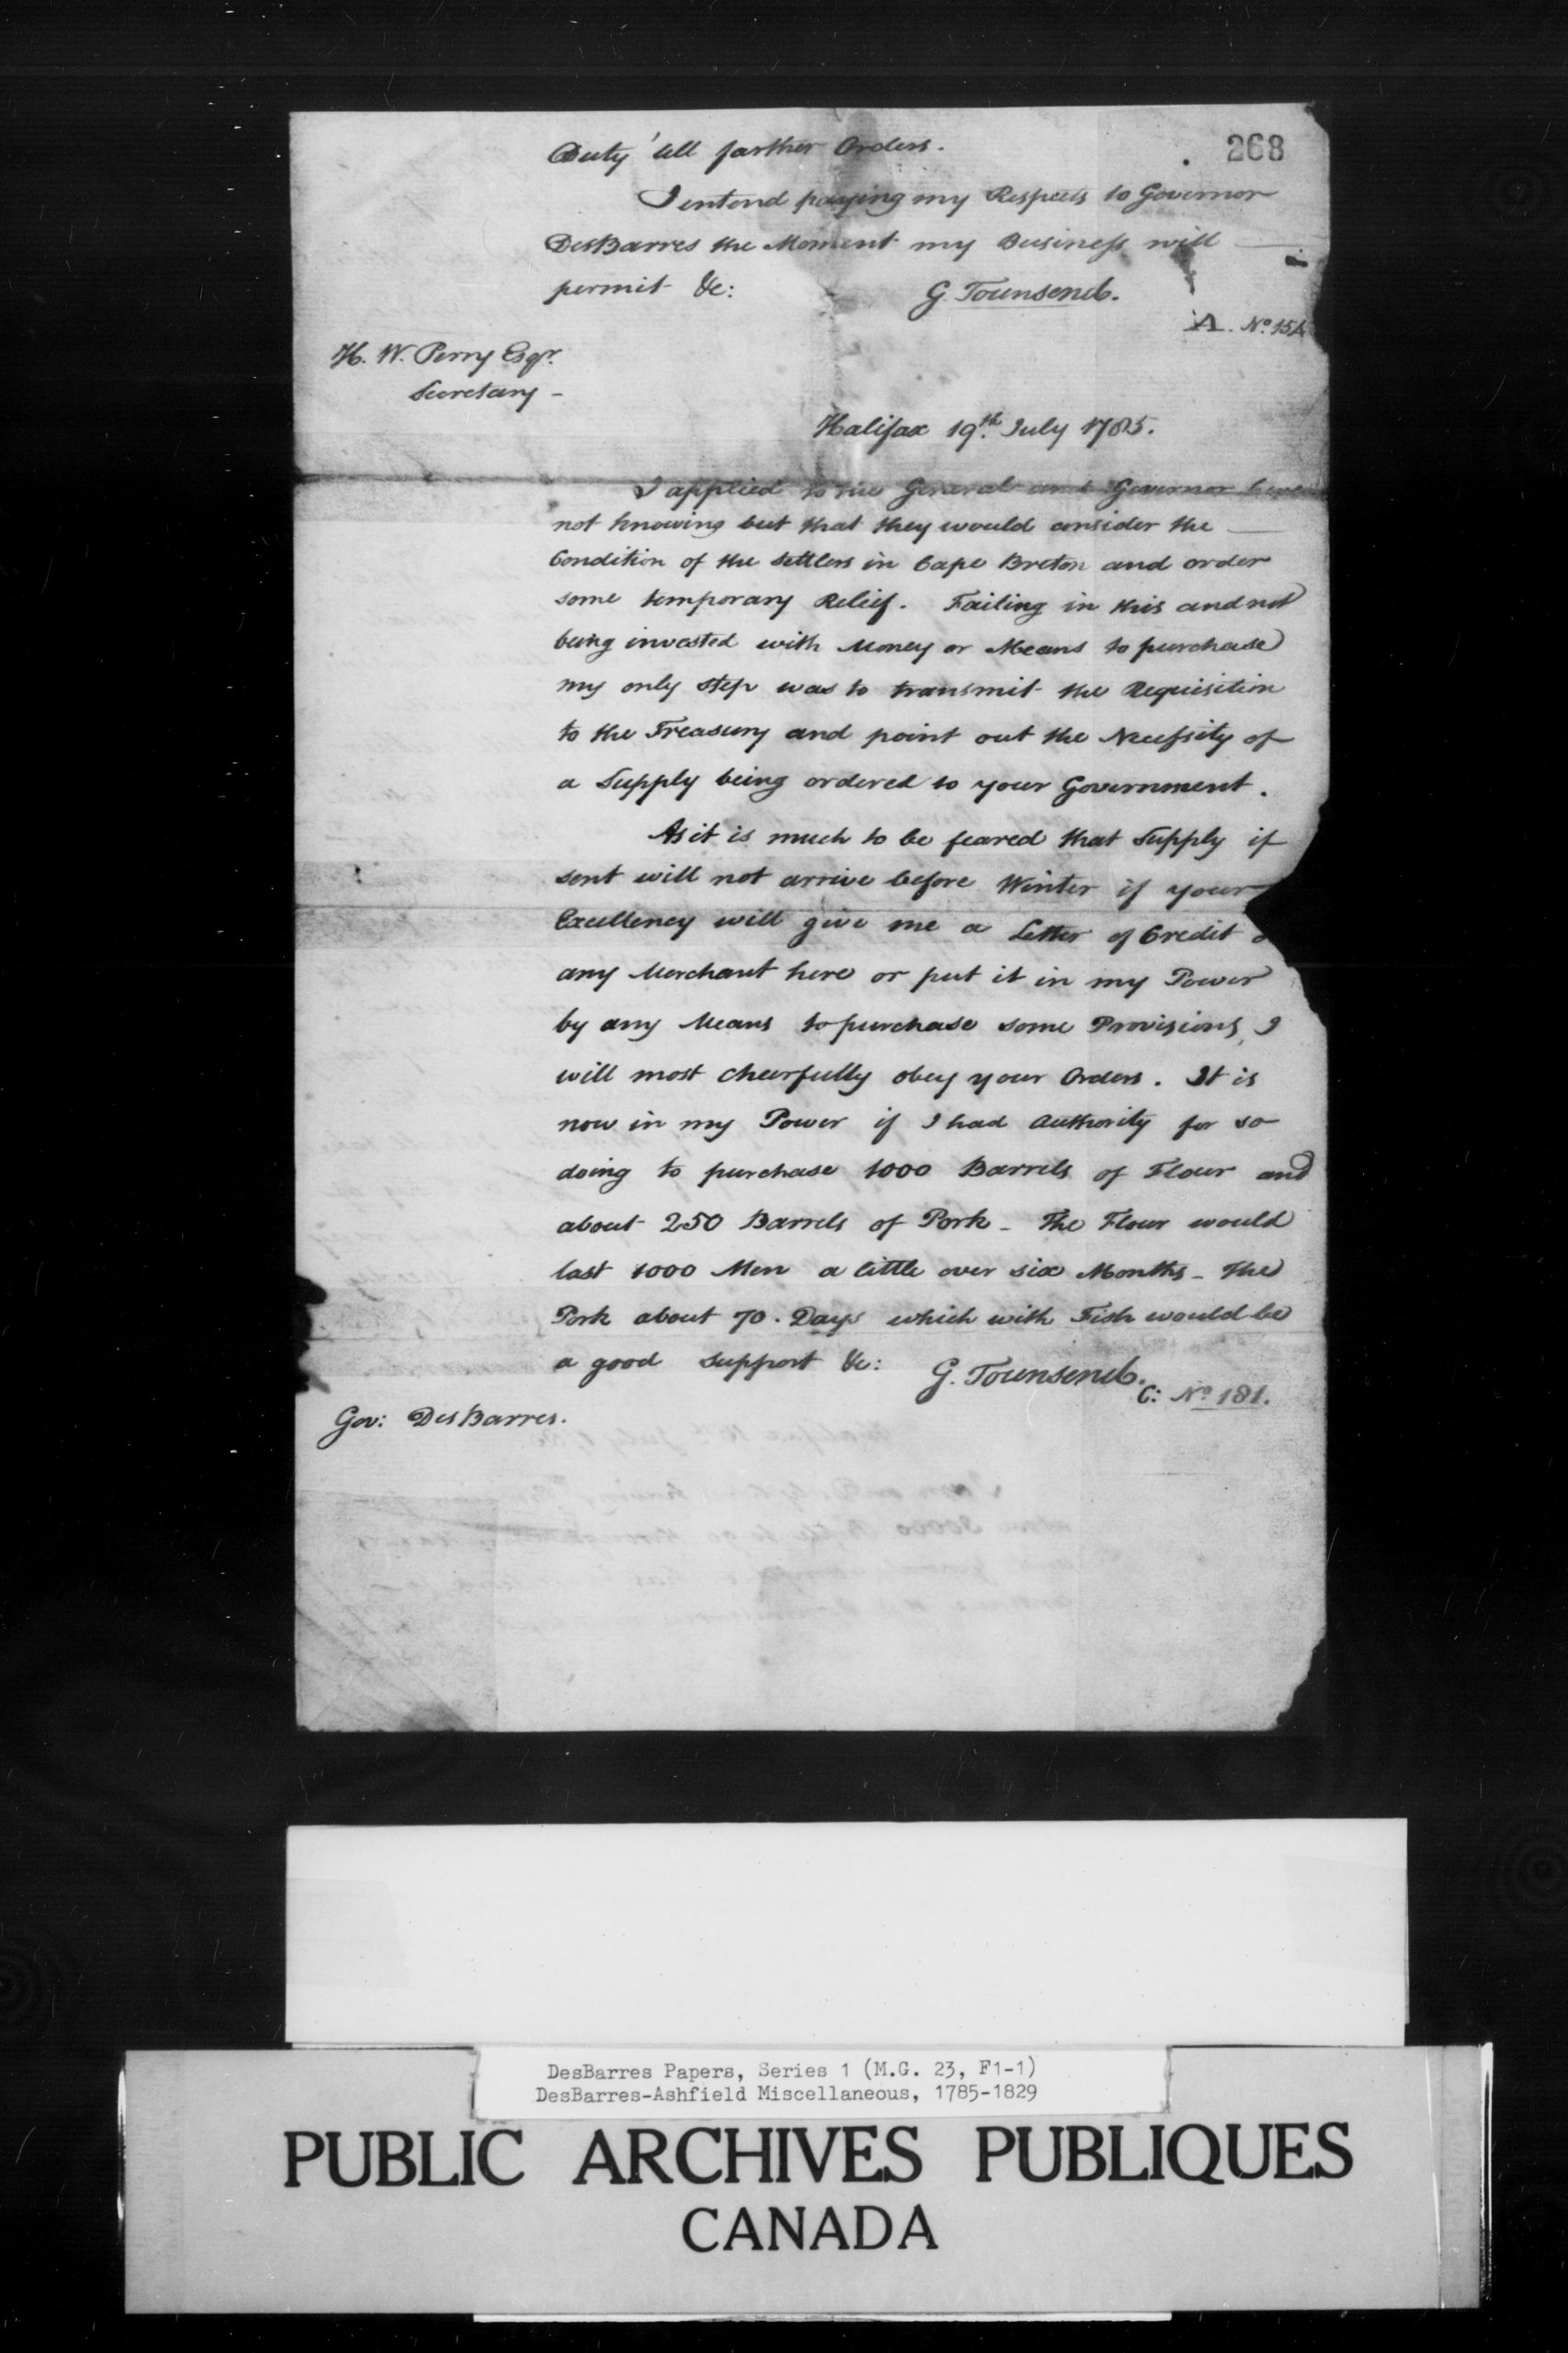 268
Duty 'till farther Orders.
I entend paying my Respects to Governor
DesBarres the Moment my Business will
permit &c: G. Townsend.
A. No. 154
H. W. Perry Esqr.
Secretary -
Halifax 19th. July 1785.
I applied to the General and Governor here
not knowing but that they would consider the
Condition of the Settlers in Cape Breton and order
some temporary Relief. Failing in this and not
being invested with Money or Means to purchase
my only step was to transmit the Requisition
to the Treasury and point out the Necessity of
a Supply being ordered to your Government.
As it is much to be feared that Supply if
sent will not arrive before Winter if your
Excellency will give me a Letter of Credit
any Merchant here or put it in my Power
by any Means to purchase some Provisions, I
will most cheerfully obey your Orders. It is
now in my Power if I had Authority for so
doing to purchase 1000 Barrels of Flour and
about 250 Barrels of Pork - The Flour would
last 1000 Men a little over six Months - The
Pork about 70. Days which with Fish would be
a good Support &c: G. Townsend.
C: No. 181.
Gov: DesBarres.
DesBarres Papers, Series 1 (M.G. 23, F1-1)
DesBarres-Ashfield Miscellaneous, 1785-1829
PUBLIC ARCHIVES PUBLIQUES
CANADA